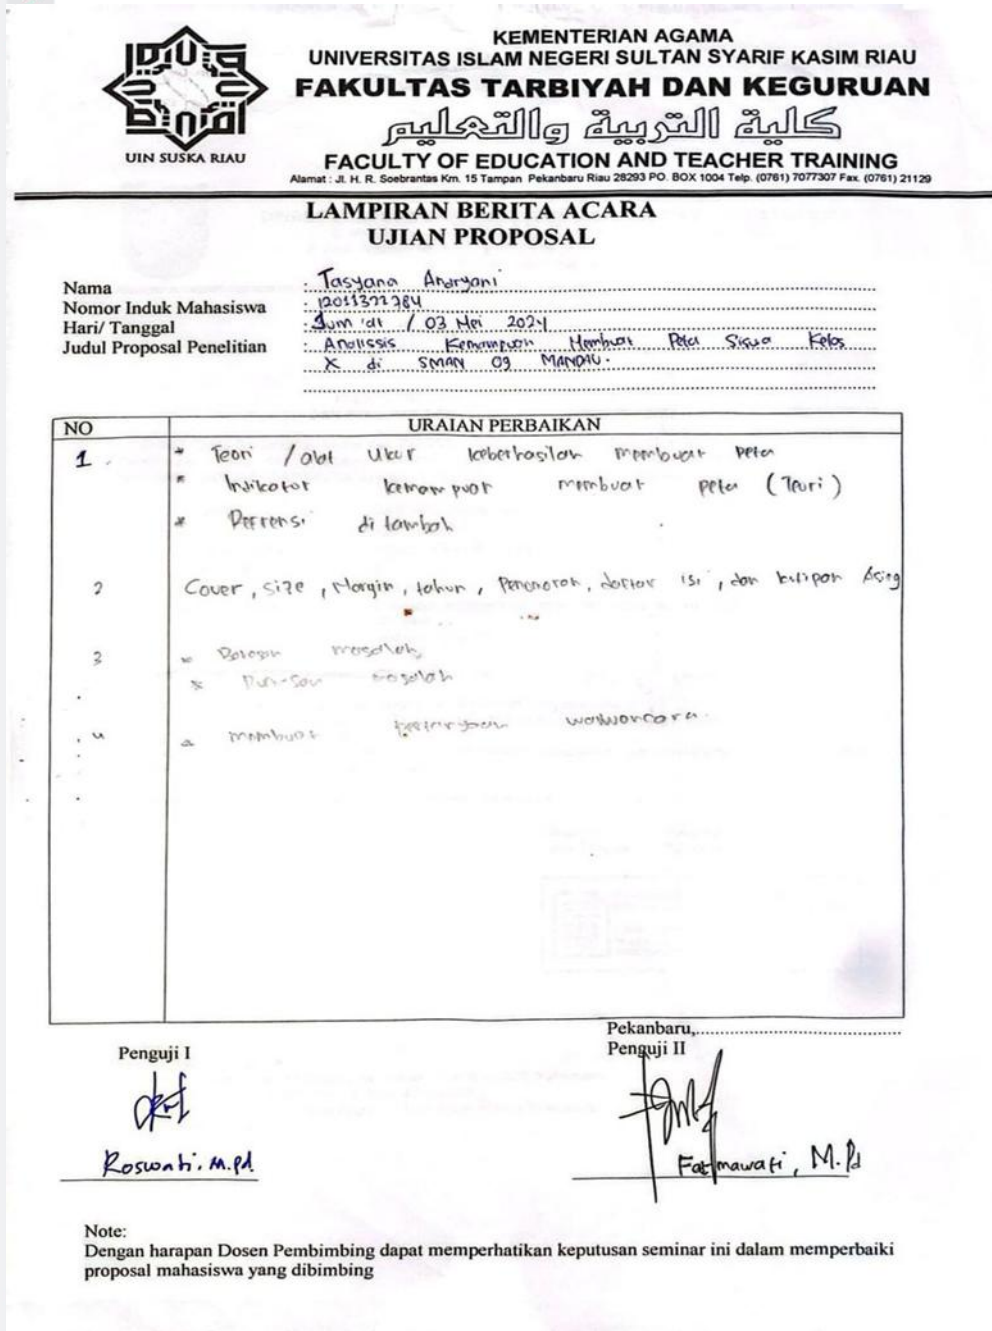 KEMENTERIAN AGAMA
UNIVERSITAS ISLAM NEGERI SULTAN SYARIF KASIM RIAU
FAKULTAS TARBIYAH DAN KEGURUAN
كلية التربية والتعليم
UIN SUSKA RIAU
FACULTY OF EDUCATION AND TEACHER TRAINING
Alamat : Jl. H. R. Soebrantas Km. 15 Tampan Pekanbaru Riau 28293 PO. BOX 1004 Telp. (0761) 7077307 Fax. (0761) 21129
LAMPIRAN BERITA ACARA
UJIAN PROPOSAL
Nama : Tasyana Andryani
Nomor Induk Mahasiswa : 12011322784
Hari/ Tanggal : Jum'at / 03 Mei 2024
Judul Proposal Penelitian : Analissis Kemampuan Membuat Peta Siswa Kelas
X di SMAN 09 MANDAU.
NO URAIAN PERBAIKAN
1. * Teori / alat Ukur keberhasilan membuat peta
* Indikator kemampuan membuat peta (Teori)
* ditambah
2 Cover, size, Margin, tahun, Penomoran, daftar isi, dan kutipan Asing
3 * Batasan masalah
* masalah
4 * membuat pertanyaan wawancara.
Pekanbaru,
Penguji I Penguji II
Roswati, M.Pd Fatmawati, M.Pd
Note:
Dengan harapan Dosen Pembimbing dapat memperhatikan keputusan seminar ini dalam memperbaiki
proposal mahasiswa yang dibimbing